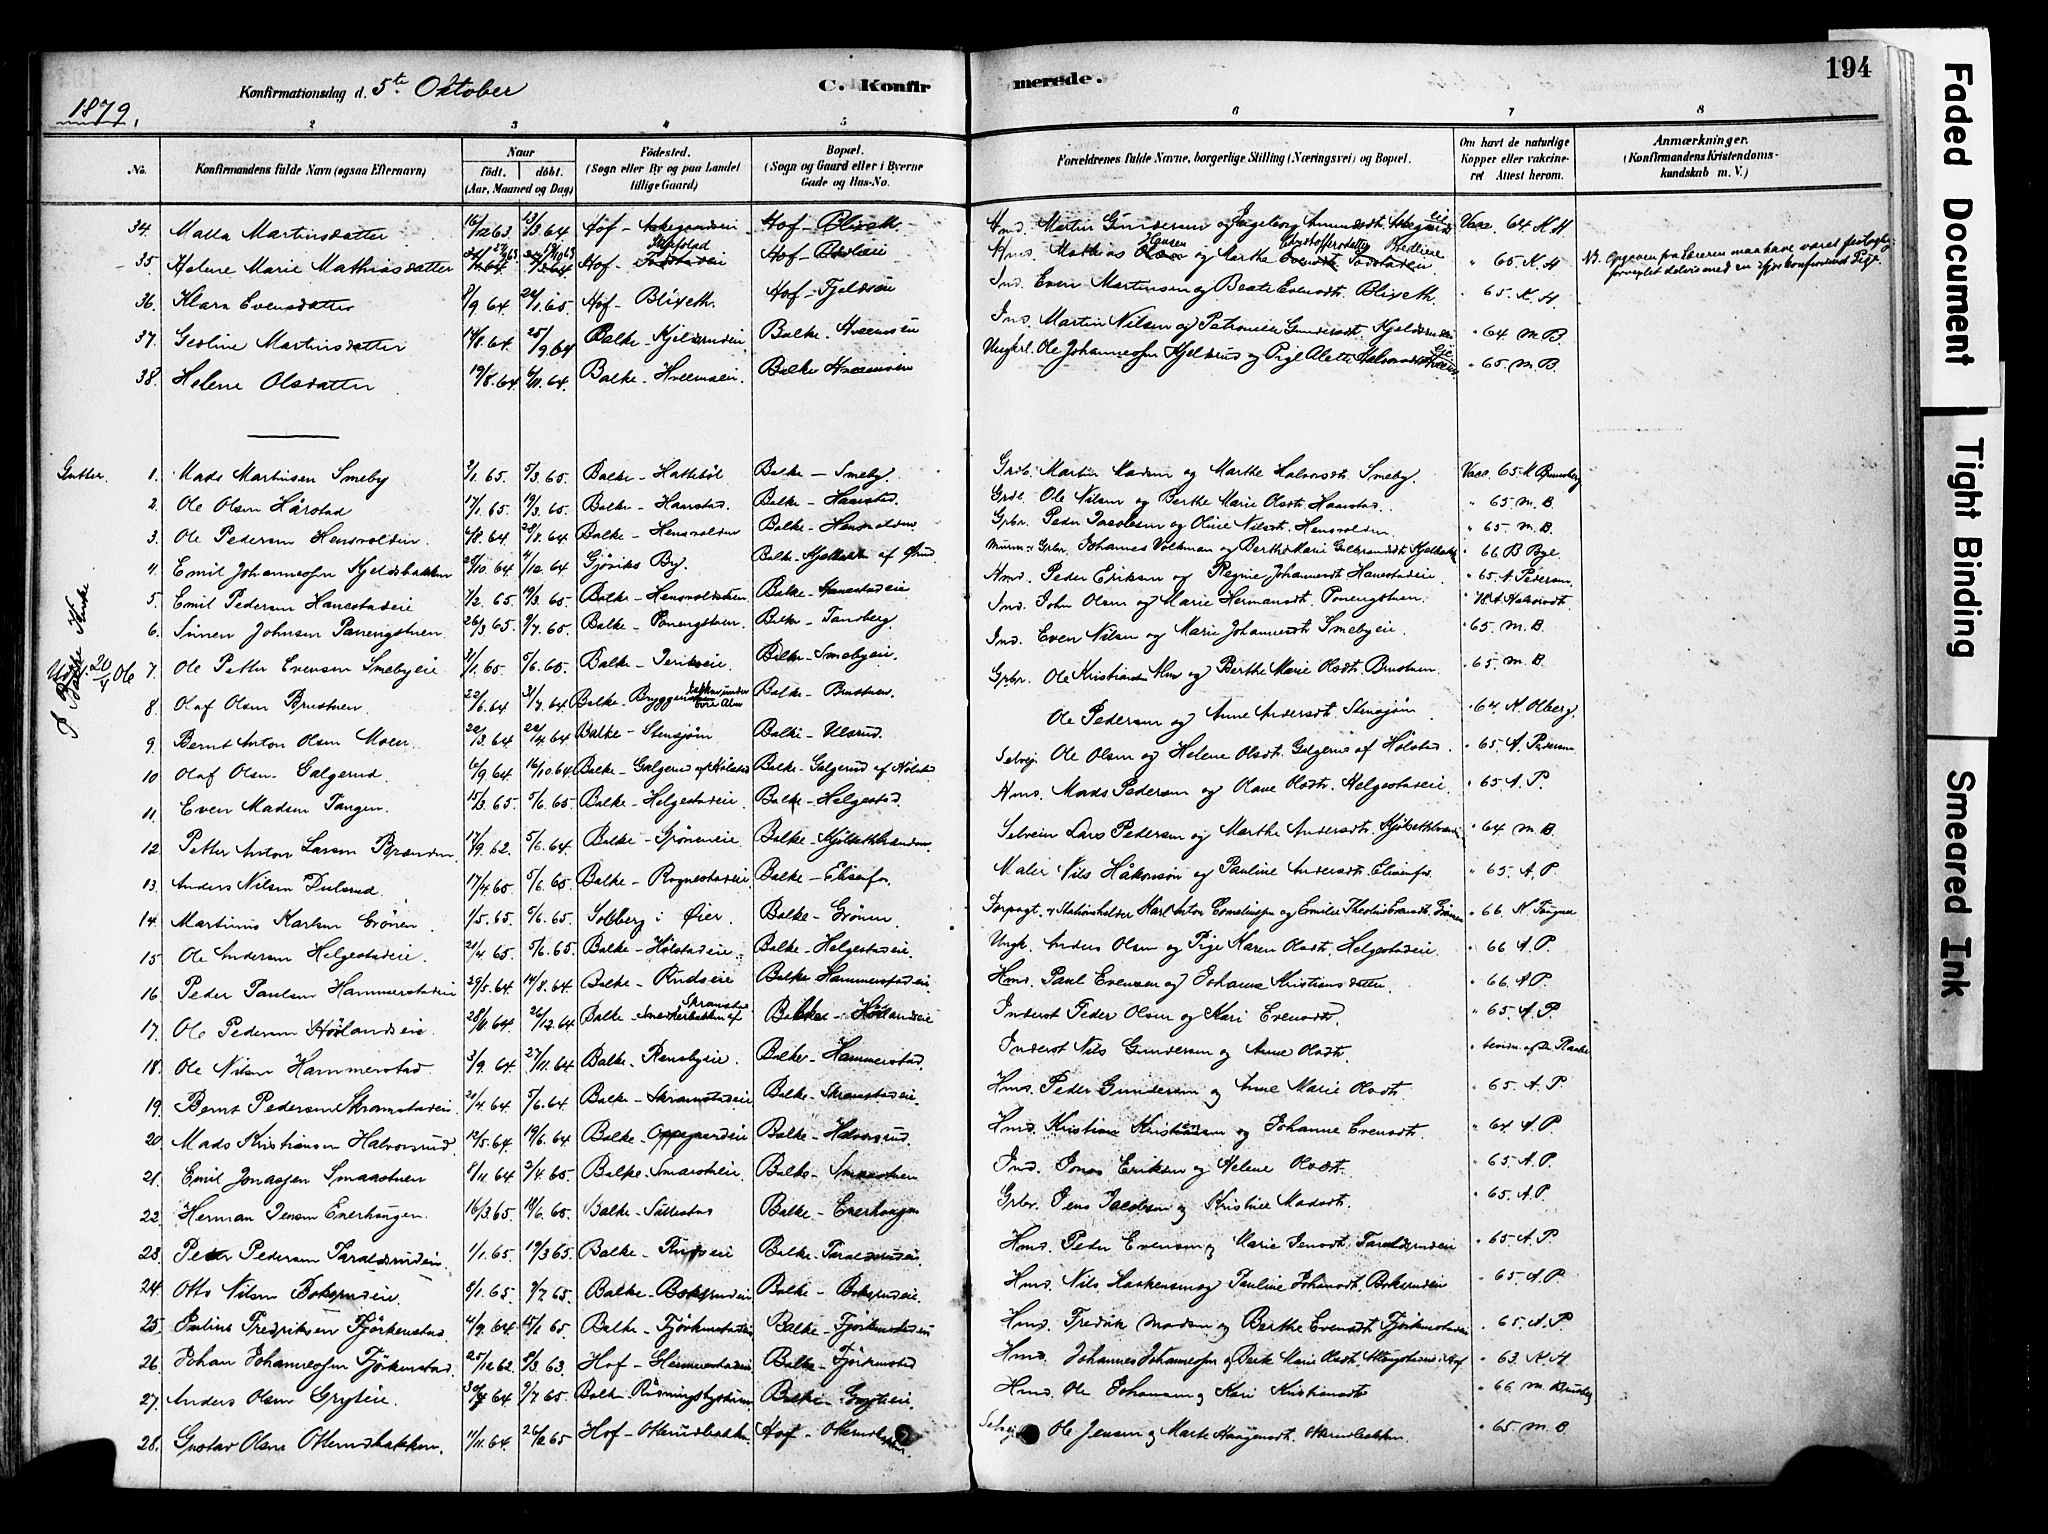 Konfirmationsdag d. 5te Oktober
C. Konfir
merede.
194
1879.
2 3 4 5 6 7 8
No.
Konfirmandens fulde Navn (ogsaa Efternavn)
Naar
født. døbt.
(Aar, Maaned og Dag)
Fødested.
(Sogn eller By og paa Landet
tillige Gaard)
Bopæl.
(Sogn og Gaard eller i Byerne
Gade og Hus-No.
Forældrenes fulde Navne, borgerlige Stilling (Næringsvei) og Bopæl.
Om havt de naturlige
Kopper eller vakcine-
ret Attest herom.
Anmærkninger.
(Konfirmandens Kristendoms-
kundskab m. V.)
34. Malla Martinsdatter 16/12 63 13/3 64 Hof - Hof - Blixeth. Hmd. Martin Gundersen og Ingeborg Amundsdt. Vacc. 64 K.H
35. Helene Marie Mathiasdatter Hof - Hof - Mathias og Marthe " 65. K.H
36. Klara Evensdatter 8/9 64 Hof - Blixeth. Hof - Fjeldseie Ind. Even Martinsen og Beate Evensdt. Blixeth. " 65. K.H.
37. Gesline Martinsdatter 14/8 64. 25/9 64 Balke - Kjeldsrudeie Balke - Hveemseie Ins. Martin Nilsen og Petronelle Gundersdt. Kjeldsrudeie " 64 M.B.
38. Helene Olsdatter 19/8 64 6/11 64. Balke - Hveemseie. Balke Hveemseie Ungkrl. Ole Johannessen Kjeldsrud og Pige Alette Halvorsdt. " 65. M.B.
Gutter.
1. Mads Martinsen Smeby 2/1 65. 5/3 65. Balke - Hattebøl Balke - Smeby. Grdb. Martin Madsen og Marthe Halvorsdt. Smeby. Vacc. 65. M Brunsberg
2. Ole Olsen Hårstad 17/1 65. 19/3 65. Balke - Haarstad. Balke - Haarstad. Grdb. Ole Nilsen og Berthe Marie Olsdt. Haarstad. " 65. M.B.
3. Ole Pedersen Hensvolden. 4/8 64. 28/8 64. Balke - Hensvolden Balke - Hensvolden. Grbr. Peder Jacobsen og Oline Nilsdt. Hensvolden " 65. M.B.
4. Emil Johannessen Kjeldsbakken 28/10 64. 4/12 64. Gjøviks By. Balke - af Grbr. Johannes Volkman og Berthe Marie Gulbrandsdt. " 66 B Bye.
5. Emil Pedersen Hanestadeie 7/2 65. 19/3 65. Balke - Hensvoldeie Balke - Hanestadeie Hmd. Peder Eriksen og Regine Johannesdt. Hanestadeie. " 65. A. Pedersen.
6. Simen Johnsen Ponengstuen. 26/3 65. 9/7 65. Balke - Ponengstuen. Balke - Tandberg. Ind. John Olsen og Marie Hermansdt. Ponengstuen.
7. Ole Petter Evensen Smebyeie 2/1 65 5/6 65. Balke - Balke - Smebyeie. Ind. Even Nilsen og Marie Johannesdt. Smebyeie. " 65. M.B.
8. Olaf Olsen Brustuen. 22/6 64 31/7 64. Balke - Balke - Brustuen. Grbr. Ole Kristiansen Alm og Berthe Marie Olsdt. Brustuen " 65. M.B.
9. Bernt Anton Olsen Moen. 20/3 64 24/4 64 Balke - Stensjøen Balke - Ulsrud. Ole Pedersen og Anne Andersdt. Stensjøen " 64. N. Olberg.
10 Olaf Olsen Galgerud 6/9 64. 16/10 64. Balke - Galgerud af Hølstad Balke - Galgerud af Hølstad Selvej. Ole Olsen og Helene Olsdt. Galgerud af Hølstad. " 65. A. Pedersen
11. Even Madsen Tangen. 15/3 65. 5/6 65. Balke - Helgestadeie. Balke - Helgestad. Hms. Mads Pedersen og Olave Olsdt. Helgestadeie. " 65. A.P.
12. Petter Anton Larsen Brænden. 17/9 62. 5/6 64. Balke - Grøneneie. Balke - Kjølsethbrænden. Selveier Lars Pedersen og Marthe Andersdt. Kjølsethbrænden " 64. M.B.
13. Anders Nilsen Dulsrud. 17/4 65. 5/6 65. Balke - Rognestadeie Balke - Elisenfor. Maler Nils Håkonsøn og Pauline Andersdt. Elisenfor. " 65. A.P.
14. Martinus Karlsen Grønen. 1/5 65. 5/6 65. Solberg i Øier. Balke - Grønen Forpagt. & Stationsholder Karl Anton Corneliussen og Emilie Grønen " 66.
15. Ole Andersen Helgestadeie. 21/4 65. 5/6 65. Balke - Hølstadeie. Balke - Helgestadeie. Ungk. Anders Olsen og Pige Karen Olsdt. Helgestadeie " 66 A.P.
16. Peder Paulsen Hammerstadeie 29/5 64. 14/8 64. Balke - Rudseie Balke Hammerstadeie. Hmd. Paul Evensen og Johanne Kristiansdatter. " 66. A.P.
17. Ole Pedersen Høilandseie. 28/11 64. 26/12 64 Balke - Snedkerbakken af Skramstad Balke - Høilandseie Inderst Peder Olsen og Kari Evensdt. " 65. A.P.
18. Ole Nilsen Hammerstad. 3/9 64. 27/11 64 Balke - Rensbyeie. Balke - Hammerstad. Inderst Nils Gundersen og Anne Olsdt.
19. Bernt Pedersen Skramstadeie. 21/4 64. 5/6 64. Balke - Skramstadeie Balke - Skramstadeie. Hms. Peder Gundersen og Anne Marie Olsdt. " 65. A.P.
20. Mads Kristiansen Halvorsrud. 12/5 64. 19/6 64 Balke - Oppegaardeie Balke - Halvorsrud. Hmd. Kristian Kristiansen og Johanne Evensdt. " 64 A.P.
21. Emil Jonassen Smaastuen 8/11 64 2/4 65. Balke - Smaastueie. Balke - Smaastuen Ind. Jonas Eriksen og Helene Olsdt. " 65. A.P.
22. Herman Jensen Enerhaugen. 16/3 65. 18/6 65. Balke - Sillestad Balke - Enerhaugen Grbr. Jens Jacobsen og Kristine Madsdt. " 65. A.P.
23. Peder Pedersen Taraldsrudeie. 1/1 65. 19/3 65. Balke - Rudseie Balke - Taraldsrudeie. Hmd. Peder Evensen og Marie Jensdt. Taraldsrudeie " 65. A.P.
24. Otto Nilsen Boksrudeie. 8/1 65. 9/7 65. Balke - Boksrudeie Balke - Boksrudeie. Hmd. Nils Haakensen og Pauline Johansdt. Boksrudeie " 65. A.P.
25. Paulius Fredriksen Fjørkenstad. 4/9 64. 15/1 65. Balke - Fjørkenstadeie Balke - Fjørkenstadeie Hmd. Fredrik Madsen og Berthe Evensdt. Fjørkenstadeie " 65. A.P.
26. Johan Johannessen Fjørkenstad. 25/12 62. 8/3 63. Hof - Balke - Fjørkenstad Hmd. Johannes Johannessen og Berte Marie Olsdt. " 63. K.H.
27. Anders Olsen Gryteie. 9/7 65. Balke - Balke - Gryteie. Hmd. Ole Johansen og Kari Kristiansdt " 66 M. Brunsberg
28. Gustav Olsen Otterudbakken. 11/11 64. 65 Hof - Otterudbakken. Hof - Otterudbakken Selvej. Ole Jensen og Marte Haagensdt. Otterudbakken. " 65. M.B.
Faded Document
Tight Binding
Smeared Ink